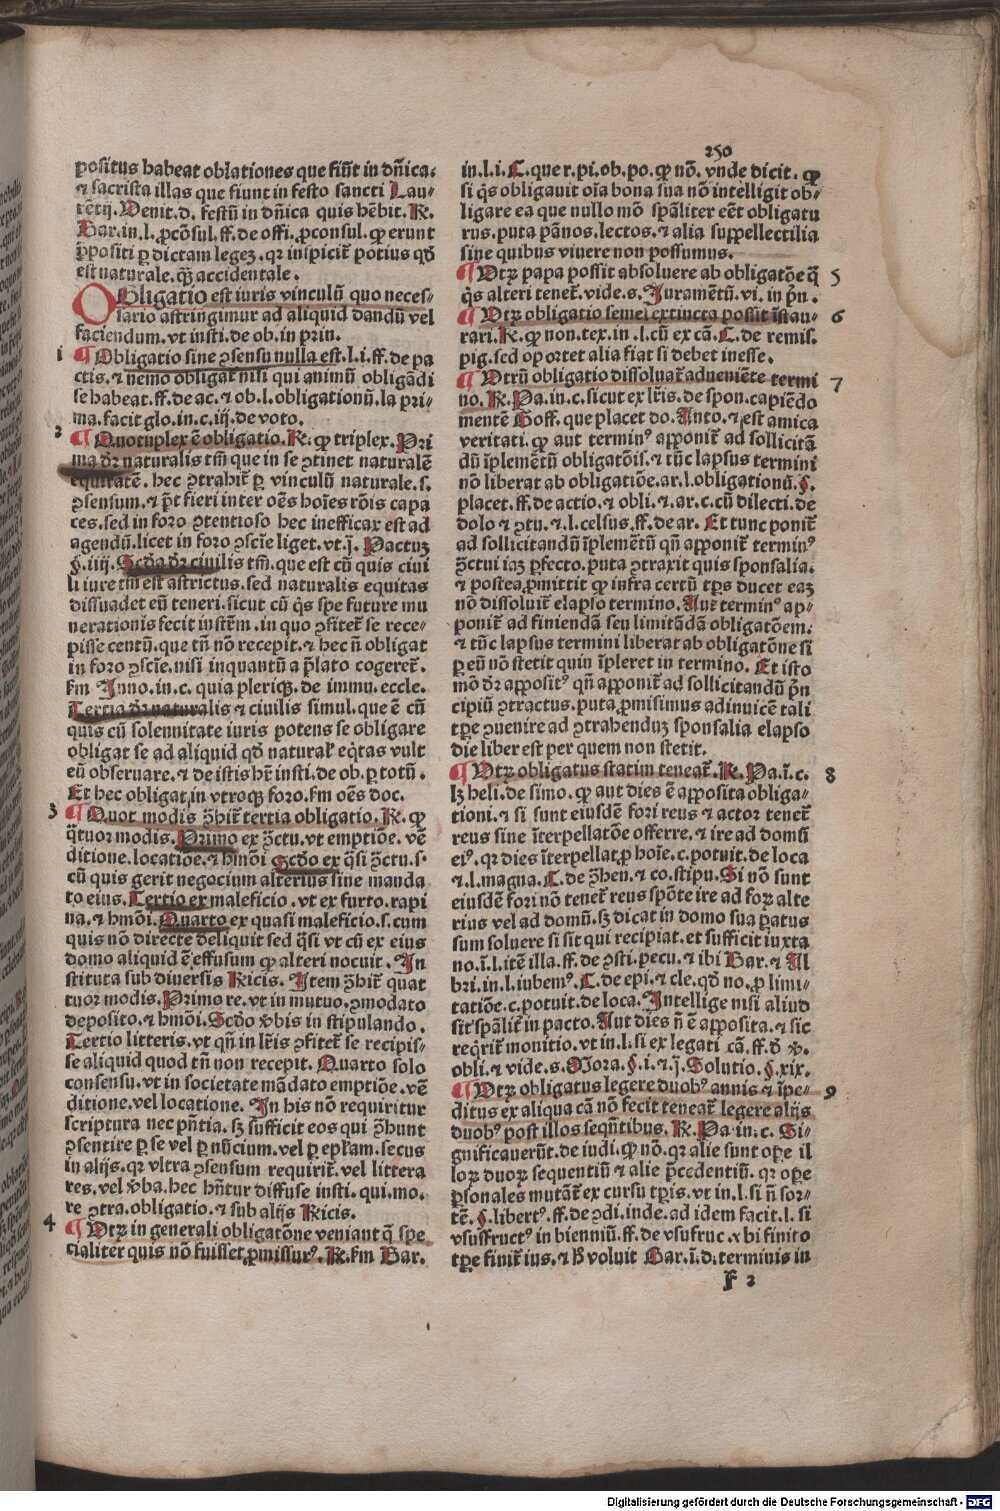 250
positus habeat oblationes que fiūt in dñica.
⁊ sacrista illas que fiunt in festo sancti Lau-
rētij. Uenit.d. festū in dñica quis hēbit. R.
Bar.in.l.ꝓcōsul.ff.de offi.ꝓconsul.ꝙ erunt
p̄positi ꝑ dictam legeꝫ.qꝛ inspicit̄ potius qd̓
est naturale.qꝫ accidentale.
OBligatio est iuris vinculū quo neces-
sario astringimur ad aliquid dandū vel
faciendum.vt insti.de ob.in prin.
1 ¶ Obligatio sine ꝯsensu nulla est.l.i.ff.de pa
ctis.⁊ nemo obligat̄ nisi qui animū obligādi
se habeat.ff.de ac.⁊ ob.l.obligationū.la pri-
ma.facit glo.in.c.iij.de voto.
2 ¶ Quotuplex ē obligatio.R.ꝙ triplex.Pri
ma dr̄ naturalis tm̄ que in se ꝯtinet naturalē
equitatē.hec ꝯtrahit̄ ꝑ vinculū naturale.s.
ꝯsensum.⁊ p̄t fieri inter oēs hoīes rōis capa
ces.sed in foro ꝯtentioso hec inefficax est ad
agendū.licet in foro ꝯscīe liget.vt.j. Pactuꝫ
§.iiij.Scd̓a dr̄ ciuilis tm̄.que est cū quis ciui
li iure tm̄ est astrictus.sed naturalis equitas
dissuadet eū teneri.sicut cū q̇s spe future nu
merationis fecit instr̄m.in quo ꝯfitet̄ se rece-
pisse centū.que tn̄ nō recepit.⁊ hec n̄ obligat
in foro ꝯscīe.nisi inquantū a p̄lato cogeret̄.
fm Inno.in.c. quia pleriqꝫ.de immu.eccle.
Tertia dr̄ naturalis ⁊ ciuilis simul.que ē cū
quis cū solennitate iuris potens se obligare
obligat se ad aliquid qd̓ natural̓ eq̇tas vult
eū obseruare.⁊ de istis hr̄ insti.de ob.ꝑ totū.
Et hec obligat in vtroqꝫ foro.fm oēs doc.
3 ¶ Quot modis ꝯ̄hit̄ tertia obligatio.R.ꝙ
q̇tuor modis.Primo ex ꝯ̄ctu.vt emptiōe.vē
ditione.locatiōe.⁊ hmōi Scd̓o ex q̇si ꝯ̄ctu.s.
cū quis gerit negocium alterius sine manda
to eius.Tertio ex maleficio.vt ex furto.rapi
na.⁊ hmōi.Quarto ex quasi maleficio.s.cum
quis nō directe deliquit sed q̇si vt cū ex eius
domo aliquid ē effusum ꝙ alteri nocuit. In
stituta sub diuersis Ricis. Item ꝯ̄hit̄ quat
tuor modis.Primo re.vt in mutuo.ꝯmodato
deposito.⁊ hmōi.Scd̓o v̓bis in stipulando.
Tertio litteris.vt qn̄ in lr̄is ꝯfitet̄ se recipis-
se aliquid quod tn̄ non recepit. Quarto solo
consensu.vt in societate mādato emptiōe.vē
ditione.vel locatione. In his nō requiritur
scriptura nec pn̄tia.sꝫ sufficit eos qui ꝯ̄hunt
ꝯsentire ꝑ se vel ꝑ nūcium.vel ꝑ ep̄łam.secus
in alijs.qꝛ vltra ꝯsensum requirit̄.vel littera
res.vel v̓ba.hec hn̄tur diffuse insti.qui.mo.
re ꝯtra.obligatio.⁊ sub alijs Ricis.
4 ¶ Utrꝫ in generali obligatōne veniant q̄ spe
cialiter quis nō fuisset ꝓmissurꝰ.R.fm Bar.
in.l.i.C.que r.pi.ob.po.ꝙ nō.vnde dicit.ꝙ
si q̇s obligauit oīa bona sua nō intelligit ob-
ligare ea que nullo mō spāliter eēt obligatu
rus.puta pānos.lectos.⁊ alia suppellectilia
sine quibus viuere non possumus.
¶ Utrꝫ papa possit absoluere ab obligatōe q̄ 5
q̇s alteri tenet̄.vide.s.Juramētū.vi.in pn̄.
¶ Utrꝫ obligatio semel extincta possit īstau- 6
rari.R.ꝙ non.tex.in.l.cū ex cā.C.de remis.
pig.sed oportet alia fiat si debet inesse.
¶ Utrū obligatio dissoluat̄ adueniēte termi 7
no.R.Pa.in.c.sicut ex lr̄is.de spon.capiēdo
mentē Goff.que placet do.Anto.⁊ est amica
veritati.ꝙ aut terminꝰ apponit̄ ad sollicitā
dū īplemētū obligatōis.⁊ tūc lapsus termini
nō liberat ab obligatiōe.ar.l.obligationū.§.
placet.ff.de actio.⁊ obli.⁊ ar.c.cū dilecti.de
dolo ⁊ ꝯtu.⁊.l.celsus.ff.de ar. Et tunc ponit̄
ad sollicitandū īplemētū qn̄ apponit̄ terminꝰ
ꝯ̄ctui iaꝫ ꝑfecto.puta ꝯtraxit quis sponsalia.
⁊ postea ꝓmittit ꝙ infra certū tꝑs ducet eaꝫ
nō dissoluit̄ elapso termino.Aut̄ terminꝰ ap-
ponit̄ ad finiendā seu limitādā obligatōem.
⁊ tūc lapsus termini liberat ab obligatōne si
ꝑ eū nō stetit quin īpleret in termino. Et isto
mō dr̄ appositꝰ qn̄ apponit̄ ad sollicitandū pn̄
cipiū ꝯtractus.puta ꝓmisimus adinuicē tali
tꝑe ꝯuenire ad ꝯtrahenduꝫ sponsalia elapso
die liber est per quem non stetit.
¶ Utrꝫ obligatus statim teneat̄.R. Pa.ī.c. 8
lꝫ heli.de simo.ꝙ aut dies ē apposita obliga-
tioni.⁊ si sunt eiusdē fori reus ⁊ actor tenet̄
reus sine īterpellatōe offerre.⁊ ire ad domū
eiꝰ.qꝛ dies īterpellat ꝓ hoīe.c.potuit.de loca
⁊.l.magna.C.de ꝯ̄hen.⁊ co.stipu.Si nō sunt
eiusdē fori nō tenet̄ reus spōte ire ad forꝫ alte
rius vel ad domū.sꝫ dicat in domo sua ꝑatus
sum soluere si sit qui recipiat.et sufficit iuxta
no.ī.l.itē illa.ff.de ꝯsti.pecu.⁊ ibi Bar.⁊ Al
bri.in.l.iubemꝰ.C.de epi.⁊ cle.qd̓ no.ꝓ limi-
tatiōe.c.potuit.de loca.Intellige nisi aliud
sit spālit̄ in pacto.Aut dies n̄ ē apposita.⁊ sic
req̇rit̄ monitio.vt in.l.si ex legati cā.ff.d̓ v̓.
obli.⁊ vide.s.Mora.§.i.⁊.j.Solutio.§.xix.
¶ Utrꝫ obligatus legere duobꝰ annis ⁊ īpe- 9
ditus ex aliqua cā nō fecit teneat̄ legere alijs
duobꝰ post illos seqn̄tibus. R. Pa.in.c. Si-
gnificauerūt.de iudi.ꝙ no.qꝛ alie sunt oꝑe il
loꝝ duoꝝ sequentiū ⁊ alie p̄cedentiū.qꝛ oꝑe
ꝑsonales mutāt̄ ex cursu tꝑis.vt in.l.si n̄ sor-
tē.§.libertꝰ.ff.de ꝯdi.inde.ad idem facit.l.si
vsusfructꝰ in bienniū.ff.de vsufruc.vbi finito
tꝑe finit̄ ius.⁊ h̓ voluit Bar.ī.d.terminis in
F 2
Digitalisierung gefördert durch die Deutsche Forschungsgemeinschaft - DFG